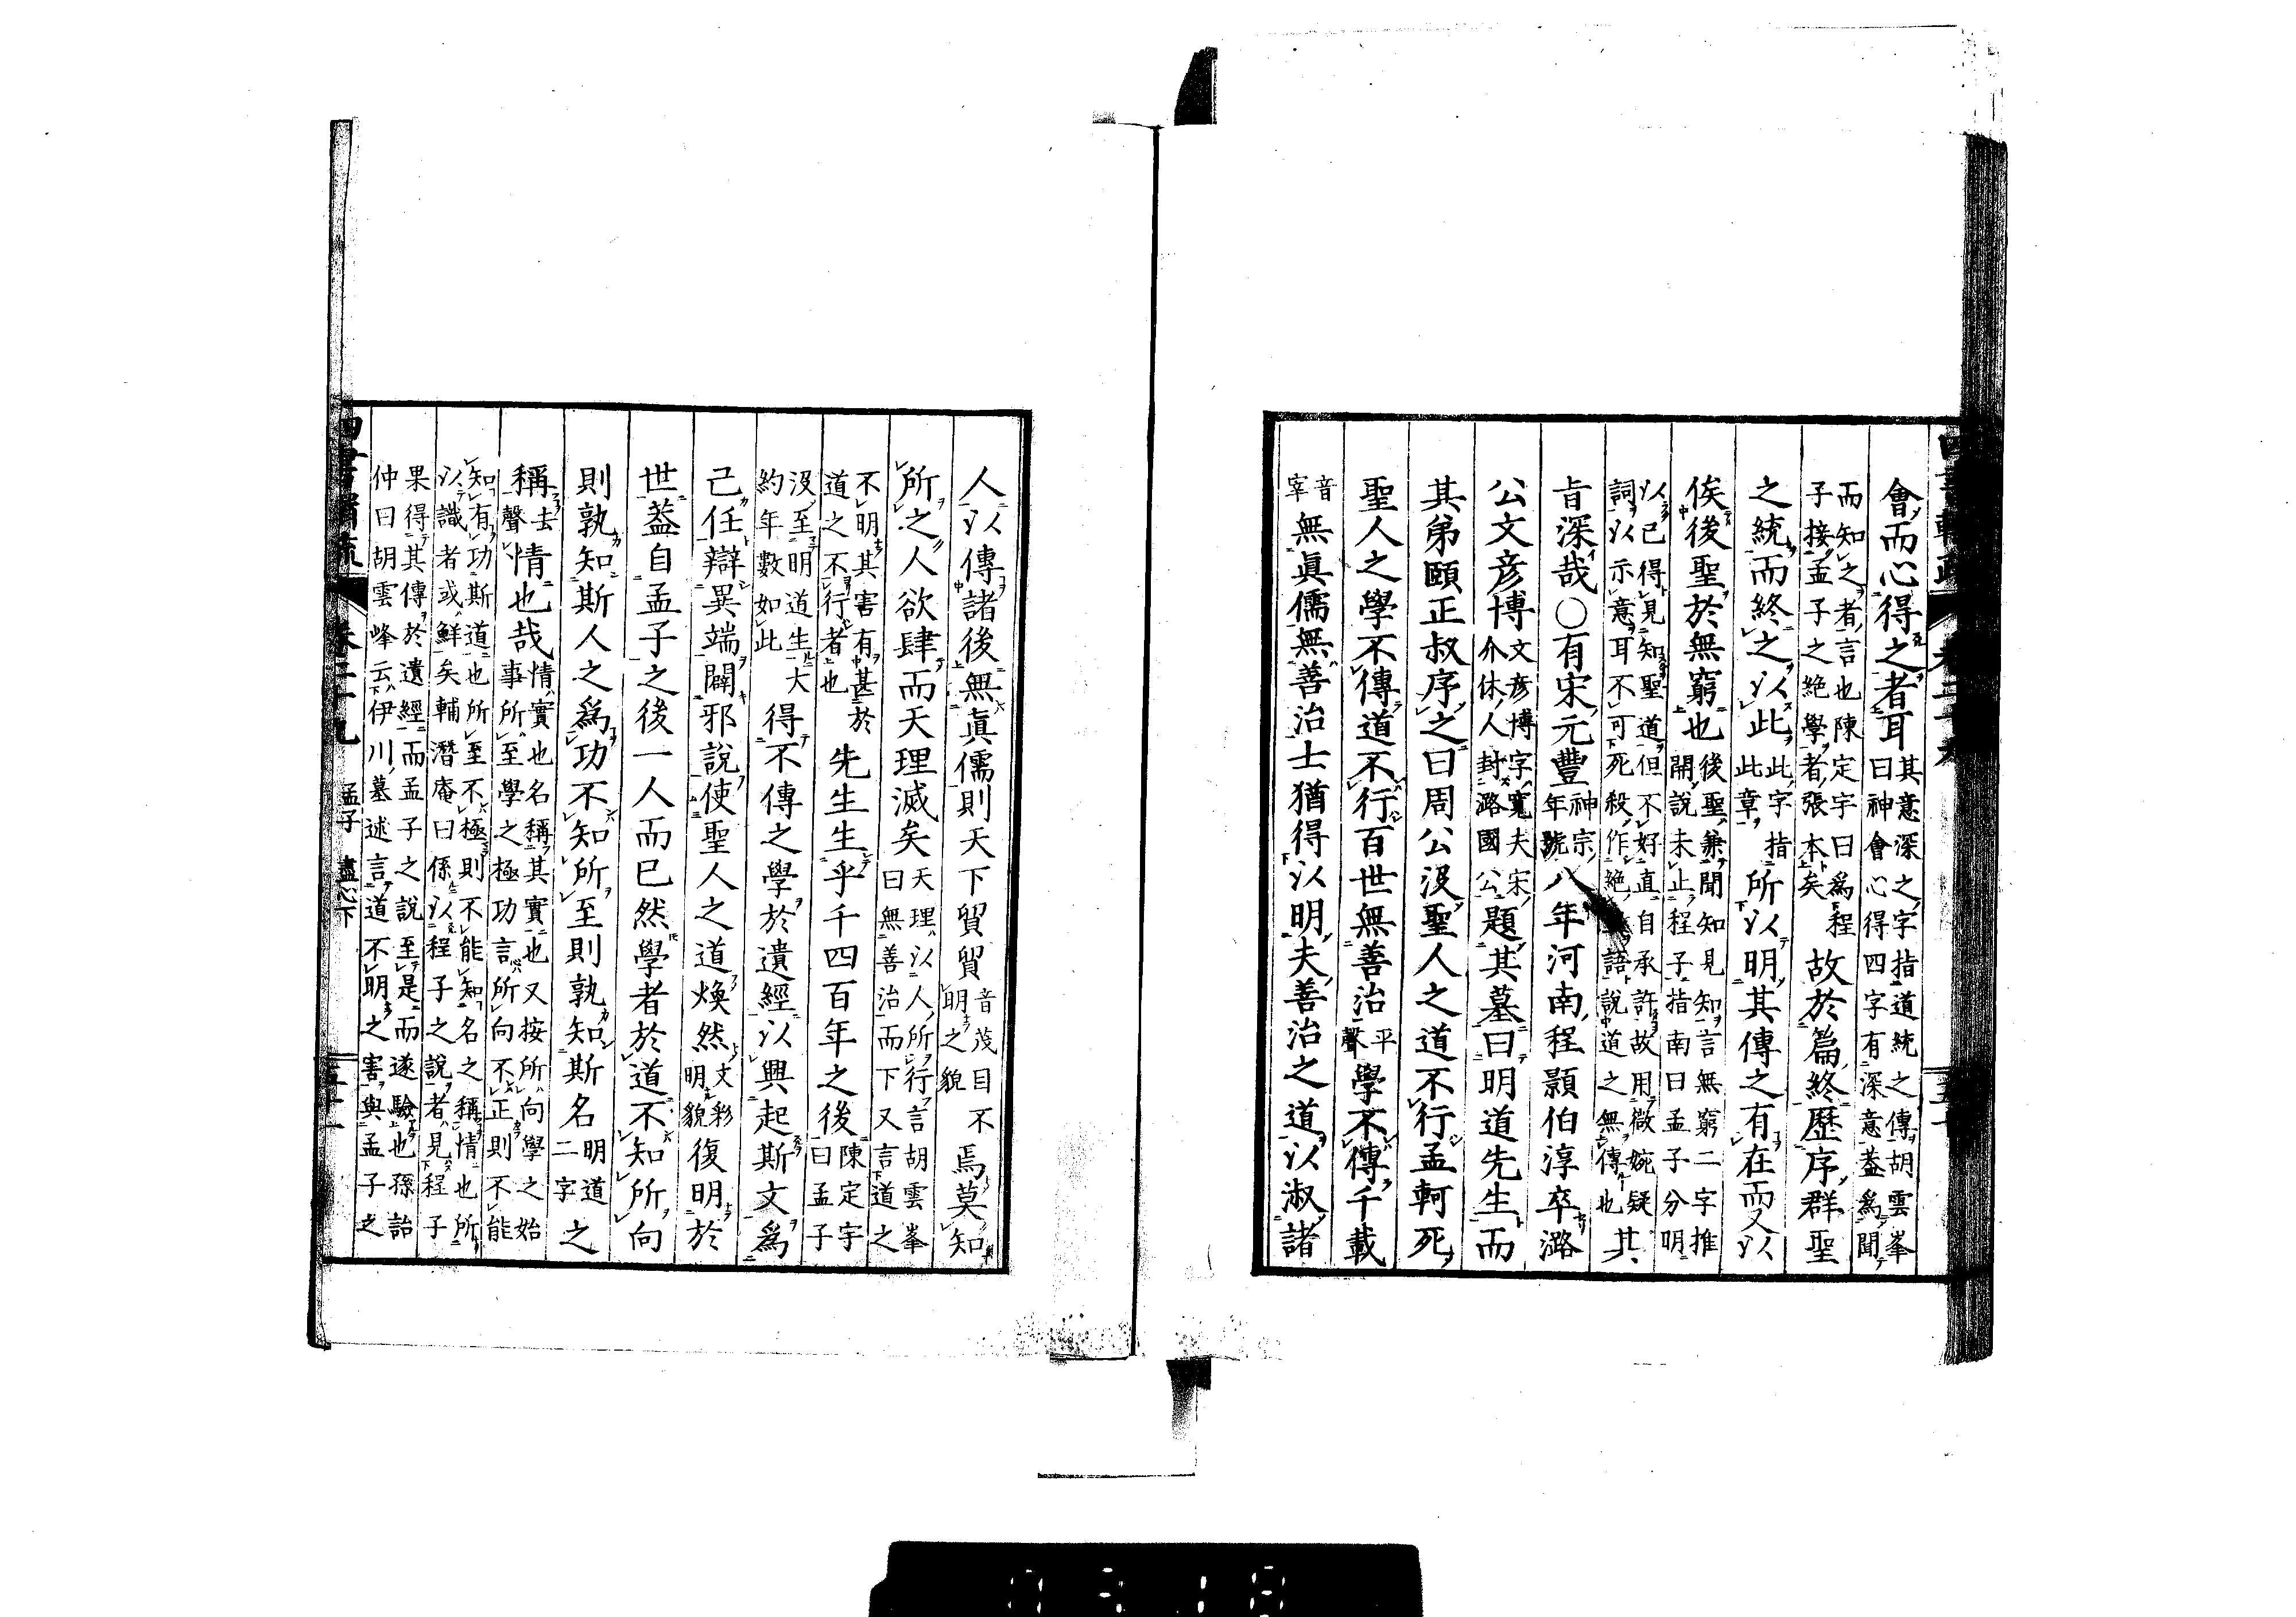 會而心得之者耳其意深之字指道統之傳胡雲峯曰神會心得四字有深意蓋爲聞
而知之者言也陳定宇曰爲程子接孟子之絶學者張本矣故於篇終歷序群聖
之統而終之以此此字指此章所以明其傳之有在而又以
俟後聖於無窮也後聖兼聞知見知言無窮二字推開說未止程子指南曰孟子分明
以已得見知聖道但不好直自承許故用微婉疑詞以示意耳不可死殺作絶語說中道之無傳也其
旨深哉○有宋元豐神宗年號八年河南程顥伯淳卒潞
公文彦博文彦博字寬夫宋介休人封潞國公題其墓曰明道先生而
其弟頤正叔序之曰周公没聖人之道不行孟軻死
聖人之學不傳道不行百世無善治平聲學不傳千載
音宰無眞儒無善治士猶得以明夫善治之道以淑諸
人以傳諸後無眞儒則天下貿貿音茂目不明之貌焉莫知
所之人欲肆而天理滅矣天理以人所行言胡雲峯曰無善治而下又言道之
不明其害有甚於道之不行者也先生生乎千四百年之後陳定宇曰孟子
没至明道生大約年數如此得不傳之學於遺經以興起斯文爲
己任辯異端闢邪說使聖人之道煥然文彩明貌復明於
世蓋自孟子之後一人而已然學者於道不知所向
則孰知斯人之爲功不知所至則孰知斯名明道二字之
稱去聲情也哉情實也名稱其實也又按所向學之始事所至學之極功言所向不正則不能
知有功斯道也所至不極則不能知名之稱情也所以識者或鮮矣輔潛庵曰係以程子之說者見程子
果得其傳於遺經而孟子之說至是而遂驗也孫詒仲曰胡雲峰云伊川墓述言道不明之害與孟子之
卷二十九 孟子 盡心下